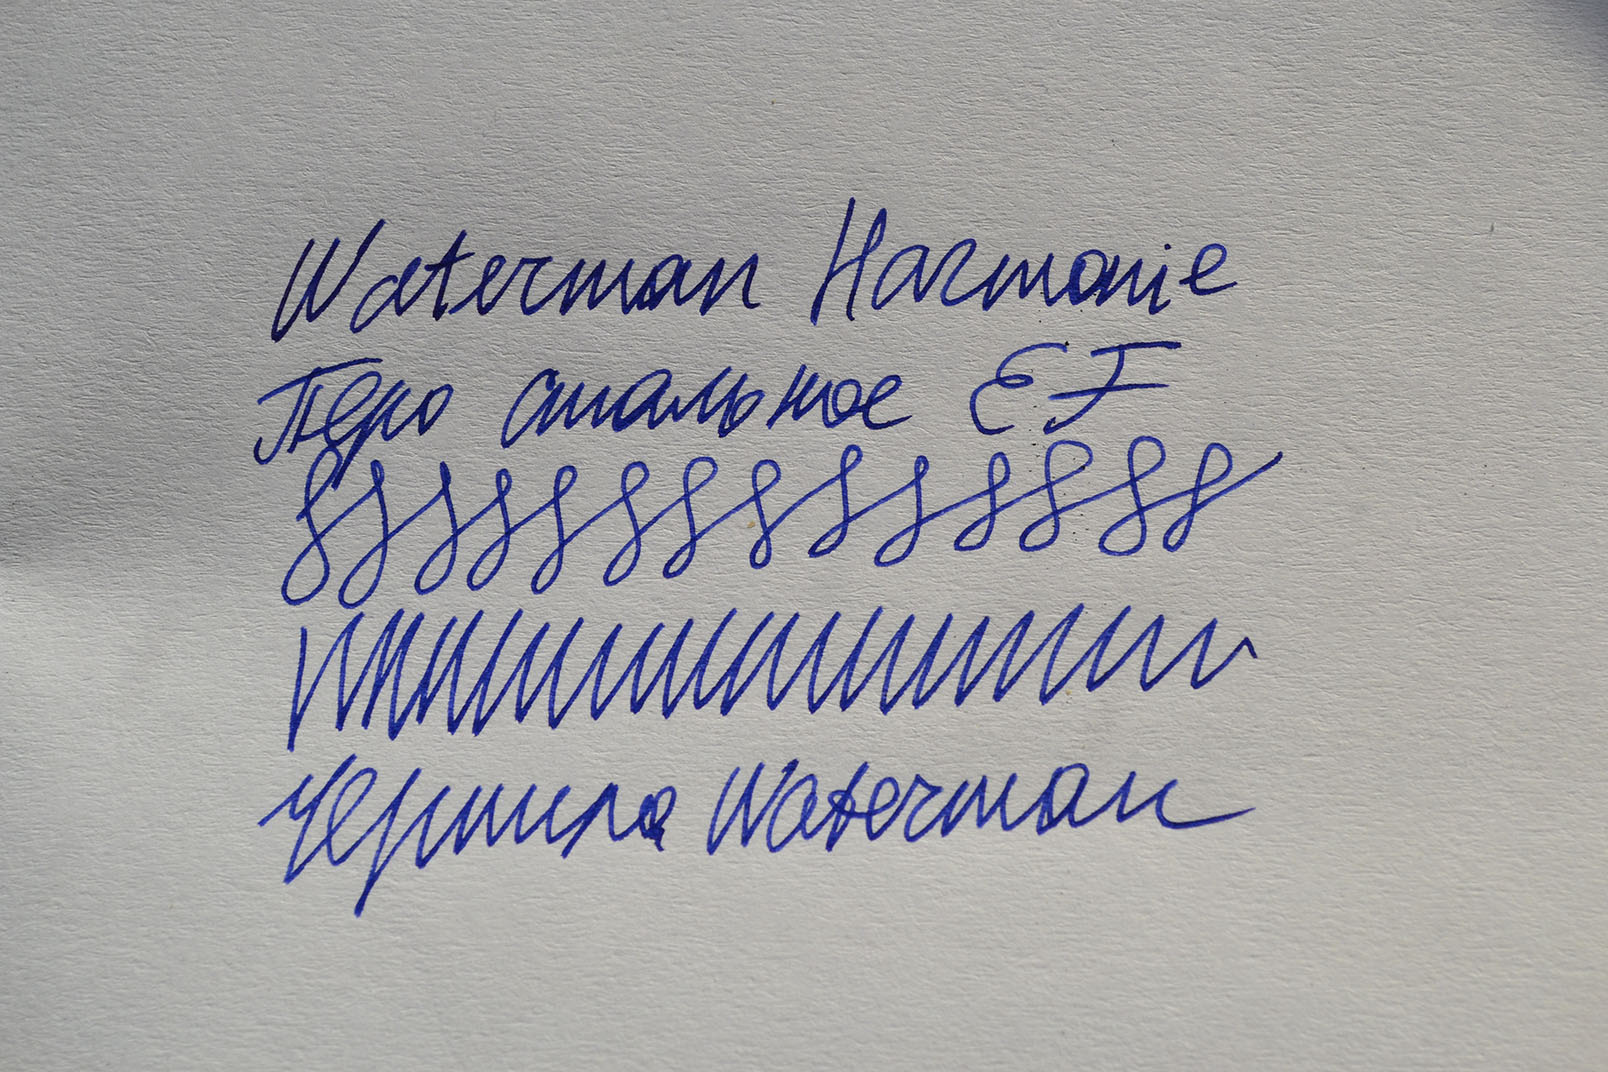 Waterman Harmonie
Перо стальное EF
Чернила Waterman